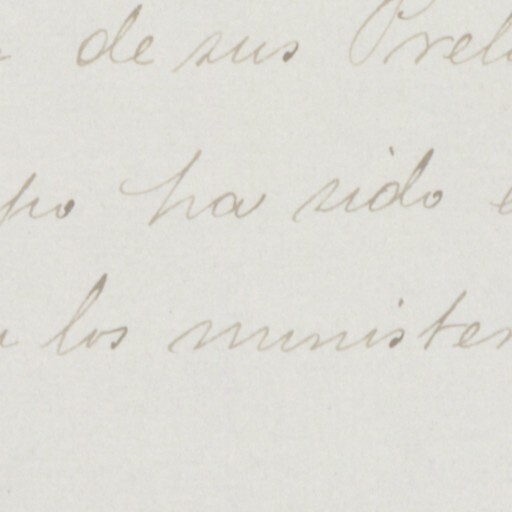 de sus Prel
po ha sido e
a los minister